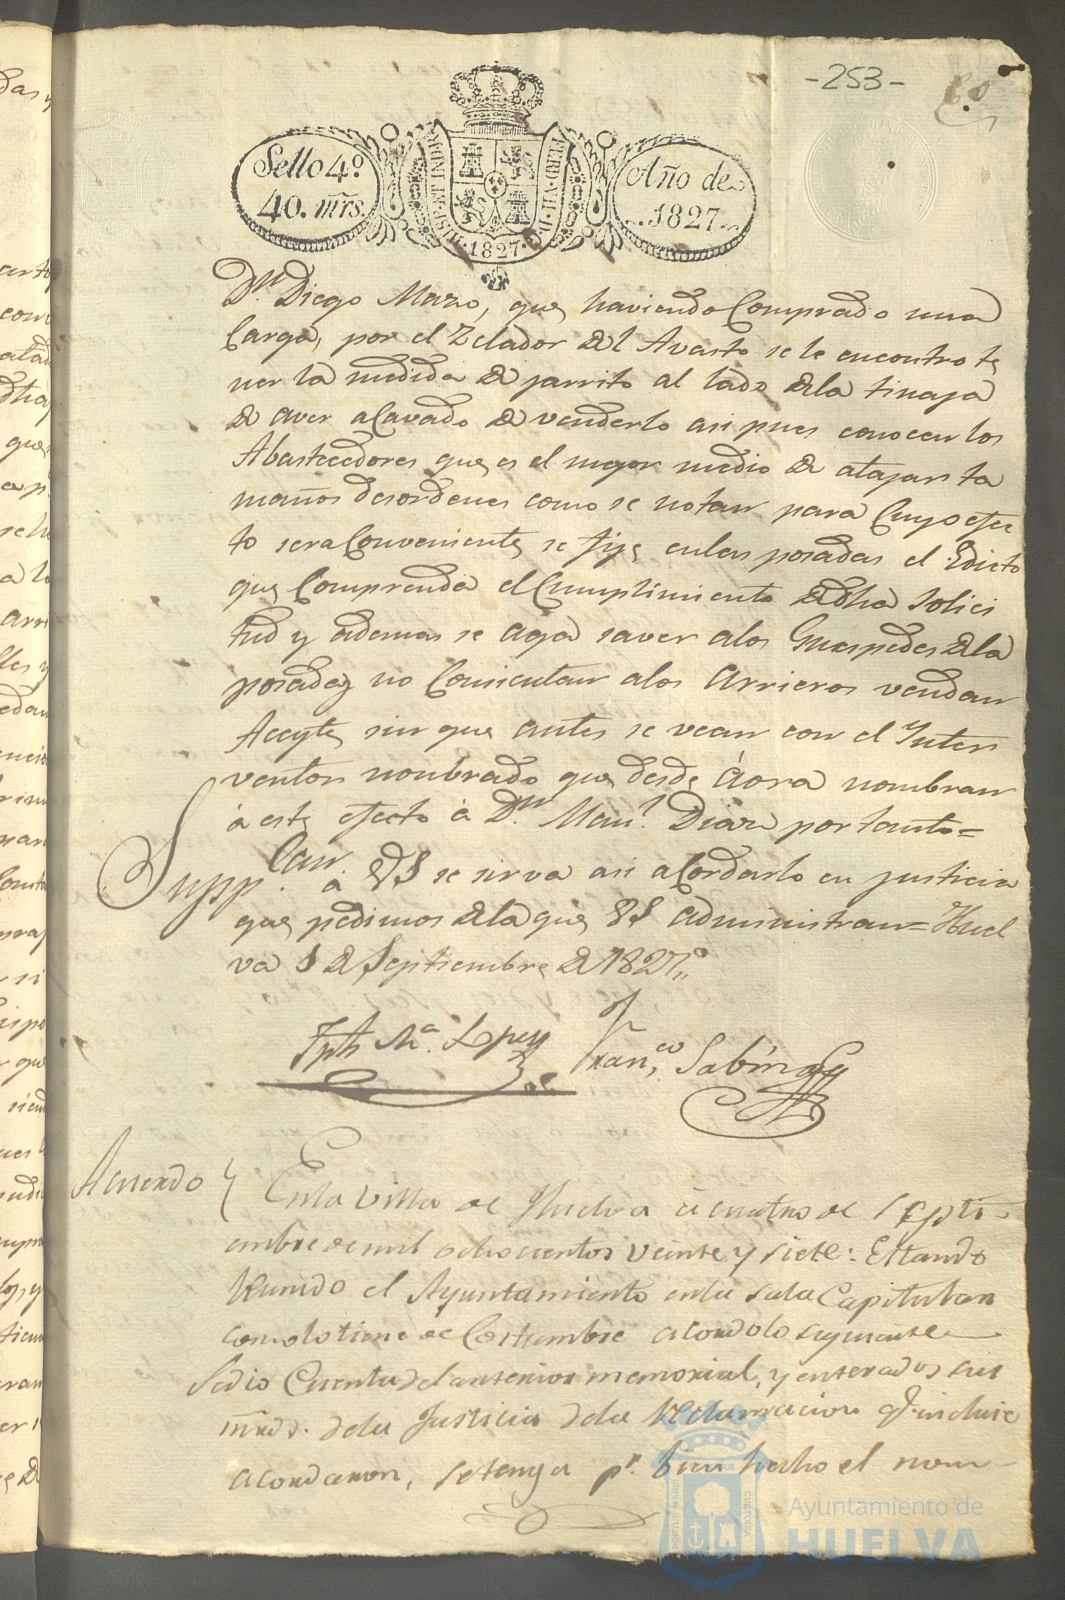 -253-
Sello 4º
40. mrs.
HISP. ET INDIAR
FERD. VII. D. G.
1827
Año de
1827
Dn. Diego Mazo, que haviendo Comprado una
Carga, por el Zelador del Avasto se le encontro te
ner la medida de jarrito al lado dela tinaja
de aver acavado de venderlo asi pues conocen los
Abastecedores que es el mejor medio de atajar ta
maños desordenes como se notan para Cuyo efec
to sera Conveniente se fije enlas posadas el Edicto
que Comprenda el Cumplimiento de dha solici
tud y ademas se aga saver alos Guespedes dela
posada no Consientan alos Arrieros vendan
Aceyte sin que antes se vean con el Inter
ventor nombrado que desde áora nombran
á este efecto á Dn. Manl. Diaz por tanto=
Suppcan. á VS se sirva asi acordarlo en justicia
que pedimos dela que VS administran= Huel
va de Septiembre de 1827
Jph Ma. Lopez Franco, Sabin
Acuerdo
En la villa de Huelva á cuatro de Septi-
embre de mil ochocientos veinte y siete: Estando
Reunido el Ayuntamiento en la sala Capitular
como lo tiene de Costumbre acordo lo siguiente
Se dio Cuenta del anterior memorial, y enterados sus
mrds. dela Justicia dela Reclamacion qe. incluie
acordaron, se tenga pr. bien hecho el nom-
Ayuntamiento de
HUELVA